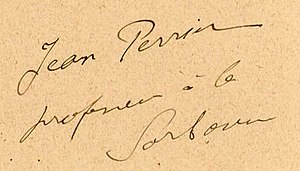 Jean Perrin
professeur à la
Sorbonne